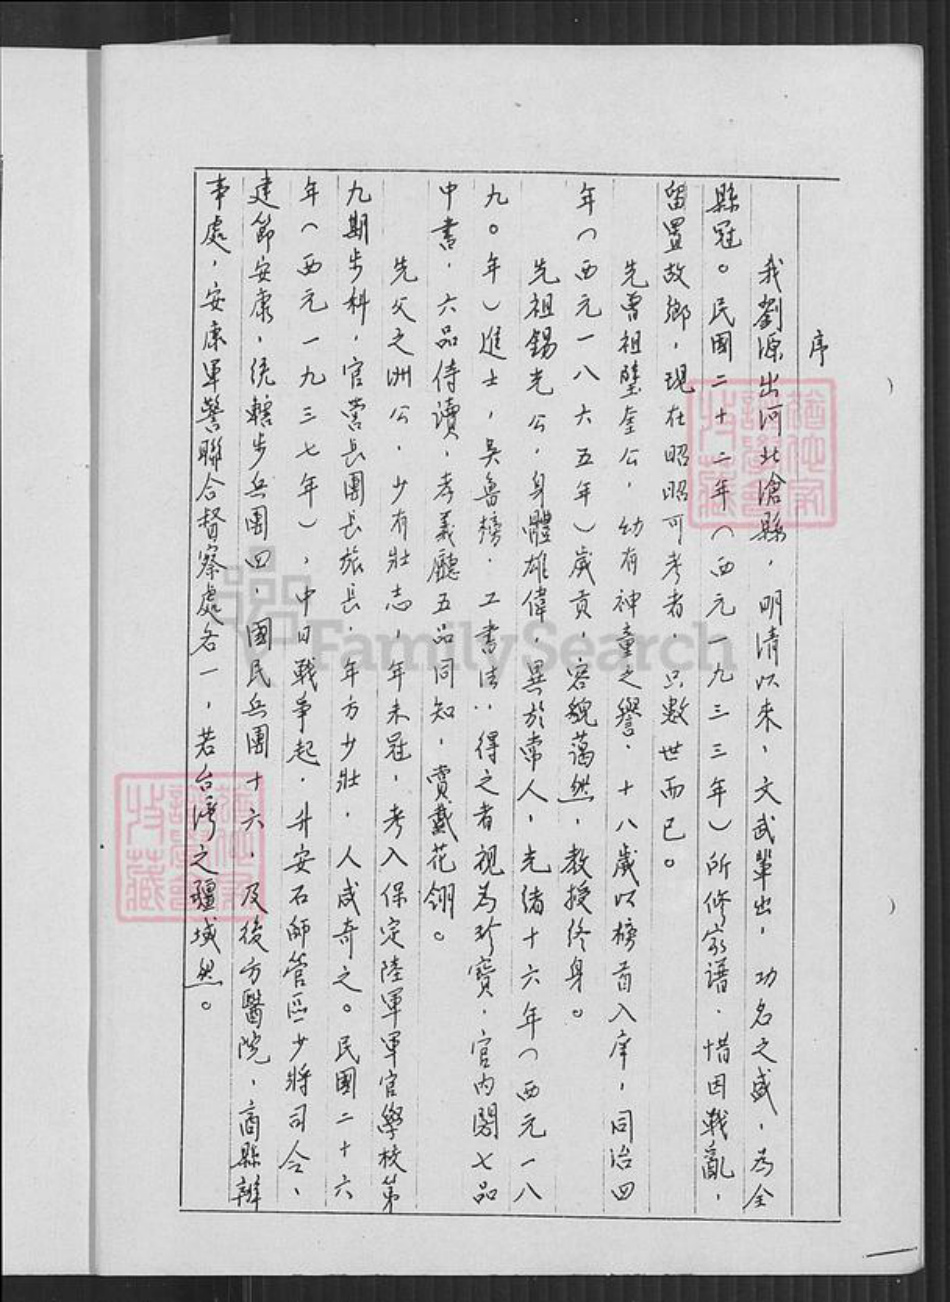 序
我劉源出河北滄縣，明清以來，文武輩出，功名之盛，為全
縣冠。民國二十二年（西元一九三三年）所修家譜，惜因戰亂，
留置故鄉，現在昭昭可考者，只數世而已。
先曾祖璧奎公，幼有神童之譽，十八歲以榜首入庠，同治四
年（西元一八六五年）歲貢，容貌藹然，教授終身。
先祖錫光公，身體雄偉，異於常人，光緒十六年（西元一八
九〇年）進士，吳魯榜，工書法，得之者視為珍寶，官內閣七品
中書，六品侍讀，孝義廳五品同知，賞戴花翎。
先父之洲公，少有壯志，年未冠，考入保定陸軍軍官學校第
九期步科，官營長團長旅長，年方少壯，人咸奇之。民國二十六
年（西元一九三七年），中日戰爭起，升安石師管區少將司令、
建節安康，統轄步兵團四，國民兵團十六，及後方醫院，商縣辦
事處，安康軍警聯合督察處各一，若台灣之疆域然。
FamilySearch